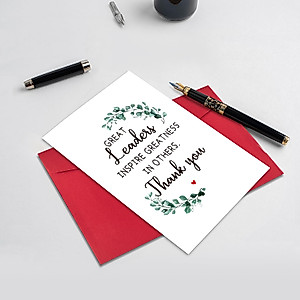 GREAT
Leaders
INSPIRE GREATNESS
IN OTHERS.
Thank you